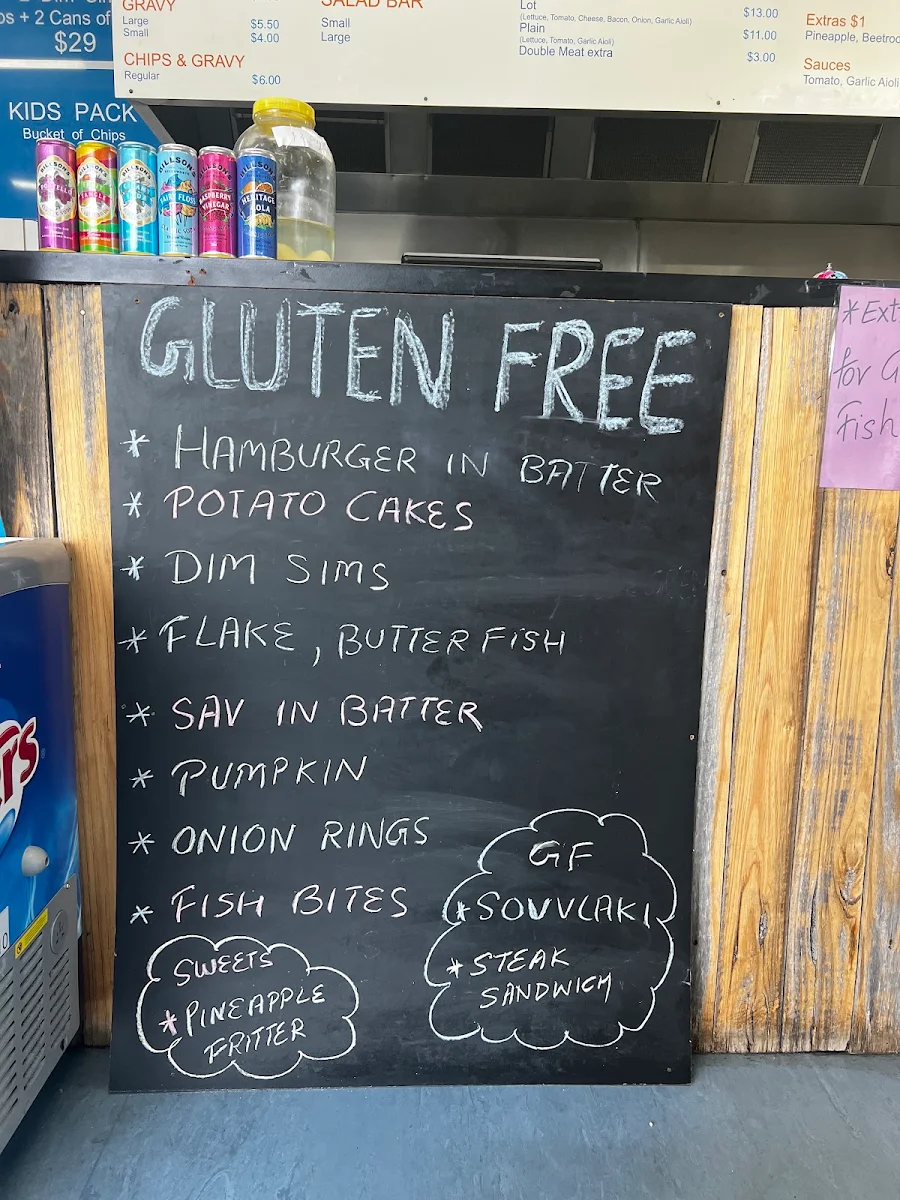 + 2 Cans of
$29
KIDS PACK
Bucket of Chips
GRAVY
Large $5.50
Small $4.00
CHIPS & GRAVY
Regular $6.00
SALAD BAR
Small
Large
Lot $13.00
(Lettuce, Tomato, Cheese, Bacon, Onion, Garlic Aioli)
Plain $11.00
(Lettuce, Tomato, Garlic Aioli)
Double Meat extra $3.00
Extras $1
Pineapple, Beetroo
Sauces
Tomato, Garlic Aioli
FAIRY FLOSS
RASPBERRY
VINEGAR
HERITAGE
COLA
GLUTEN FREE
* HAMBURGER IN BATTER
* POTATO CAKES
* DIM SIMS
* FLAKE, BUTTERFISH
* SAV IN BATTER
* PUMPKIN
* ONION RINGS
* FISH BITES
SWEETS
* PINEAPPLE
FRITTER
GF
* SOUVLAKI
* STEAK
SANDWICH
* Ext
for G
Fish